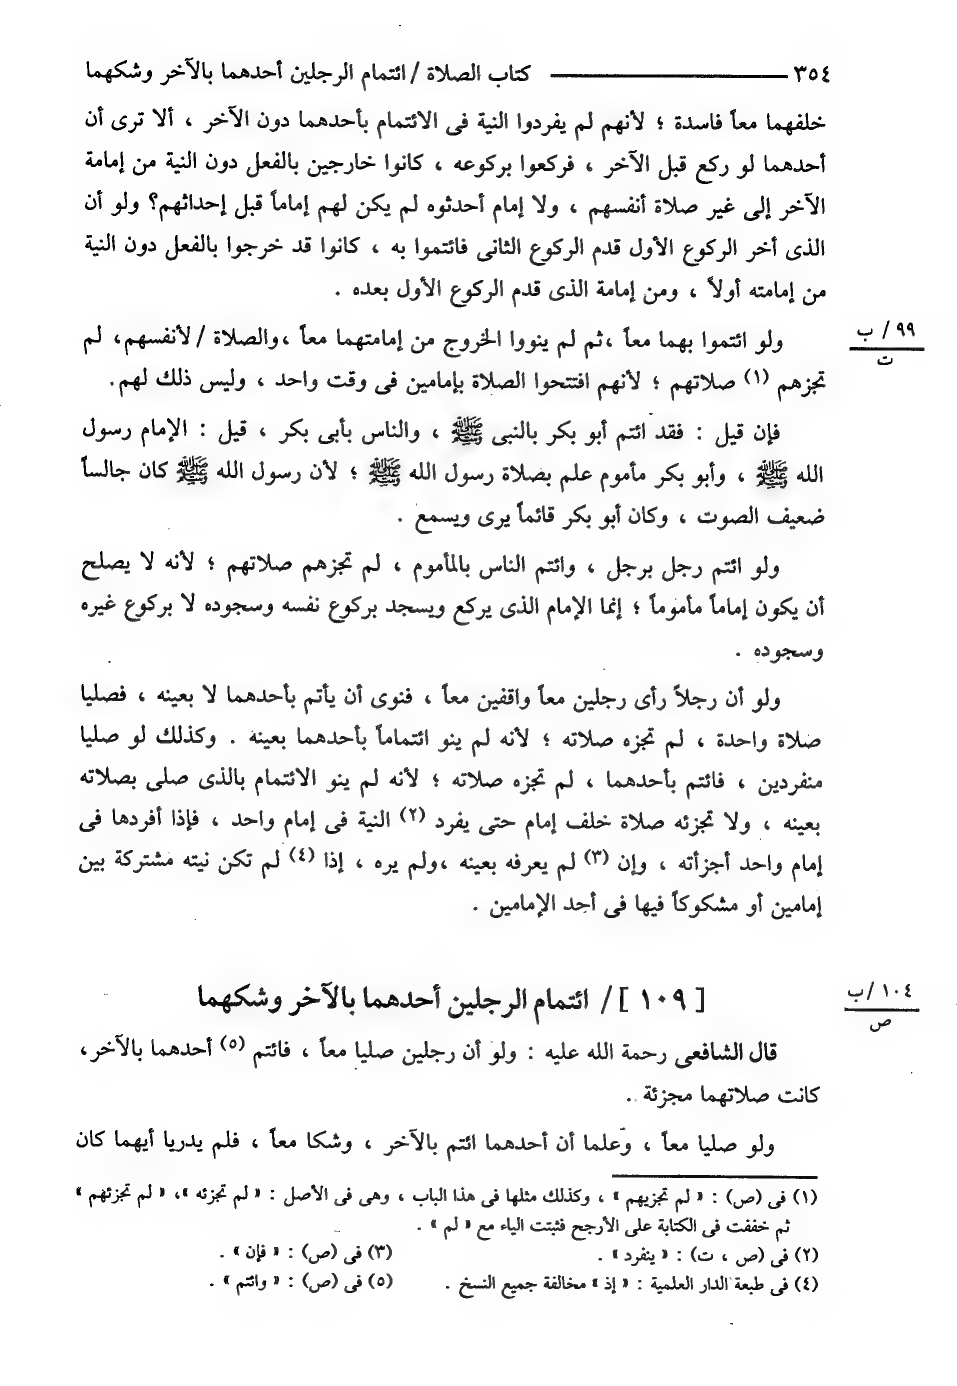 ٣٥٤ ــــــــــــــــ كتاب الصلاة / ائتمام الرجلين أحدهما بالآخر وشكهما
خلفهما معاً فاسدة ؛ لأنهم لم يفردوا النية فى الائتمام بأحدهما دون الآخر ، ألا ترى أن
أحدهما لو ركع قبل الآخر ، فركعوا بركوعه ، كانوا خارجين بالفعل دون النية من إمامة
الآخر إلى غير صلاة أنفسهم ، ولا إمام أحدثوه لم يكن لهم إماماً قبل إحداثهم؟ ولو أن
الذى أخر الركوع الأول قدم الركوع الثانى فائتموا به ، كانوا قد خرجوا بالفعل دون النية
من إمامته أولاً ، ومن إمامة الذى قدم الركوع الأول بعده .
٩٩ / ب
ت
ولو ائتموا بهما معاً ،ثم لم ينووا الخروج من إمامتهما معاً ،والصلاة / لأنفسهم، لم
تجزهم (١) صلاتهم ؛ لأنهم افتتحوا الصلاة بإمامين فى وقت واحد ، وليس ذلك لهم.
فإن قيل : فقد ائتم أبو بكر بالنبى ﷺ ، والناس بأبى بكر ، قيل : الإمام رسول
الله ﷺ ، وأبو بكر مأموم علم بصلاة رسول الله ﷺ ؛ لأن رسول الله ﷺ كان جالساً
ضعيف الصوت ، وكان أبو بكر قائماً يرى ويسمع .
ولو ائتم رجل برجل ، وائتم الناس بالمأموم ، لم تجزهم صلاتهم ؛ لأنه لا يصلح
أن يكون إماماً مأموماً ؛ إنما الإمام الذى يركع ويسجد بركوع نفسه وسجوده لا بركوع غيره
وسجوده .
ولو أن رجلاً رأى رجلين معاً واقفين معاً ، فنوى أن يأتم بأحدهما لا بعينه ، فصليا
صلاة واحدة ، لم تجزه صلاته ؛ لأنه لم ينو ائتماماً بأحدهما بعينه . وكذلك لو صليا
منفردين ، فائتم بأحدهما ، لم تجزه صلاته ؛ لأنه لم ينو الائتمام بالذى صلى بصلاته
بعينه ، ولا تجزئه صلاة خلف إمام حتى يفرد (٢) النية فى إمام واحد ، فإذا أفردها فى
إمام واحد أجزأته ، وإن (٣) لم يعرفه بعينه ،ولم يره ، إذا (٤) لم تكن نيته مشتركة بين
إمامين أو مشكوكاً فيها فى أحد الإمامين .
١٠٤ /ب
ص
[ ١٠٩ ] / ائتمام الرجلين أحدهما بالآخر وشكهما
قال الشافعى رحمة الله عليه : ولو أن رجلين صليا معاً ، فائتم (٥) أحدهما بالآخر،
كانت صلاتهما مجزئة .
ولو صليا معاً ، وعلما أن أحدهما ائتم بالآخر ، وشكا معاً ، فلم يدريا أيهما كان
(١) فى (ص) : « لم تجزيهم » ، وكذلك مثلها فى هذا الباب ، وهى فى الأصل : « لم تجزئه »، « لم تجزئهم »
ثم خففت فى الكتابة على الأرجح فثبتت الياء مع « لم » .
(٢) فى (ص ، ت) : « ينفرد » . (٣) فى (ص) : « فإن » .
(٤) فى طبعة الدار العلمية : « إذ » مخالفة جميع النسخ . (٥) فى (ص) : « وائتم » .